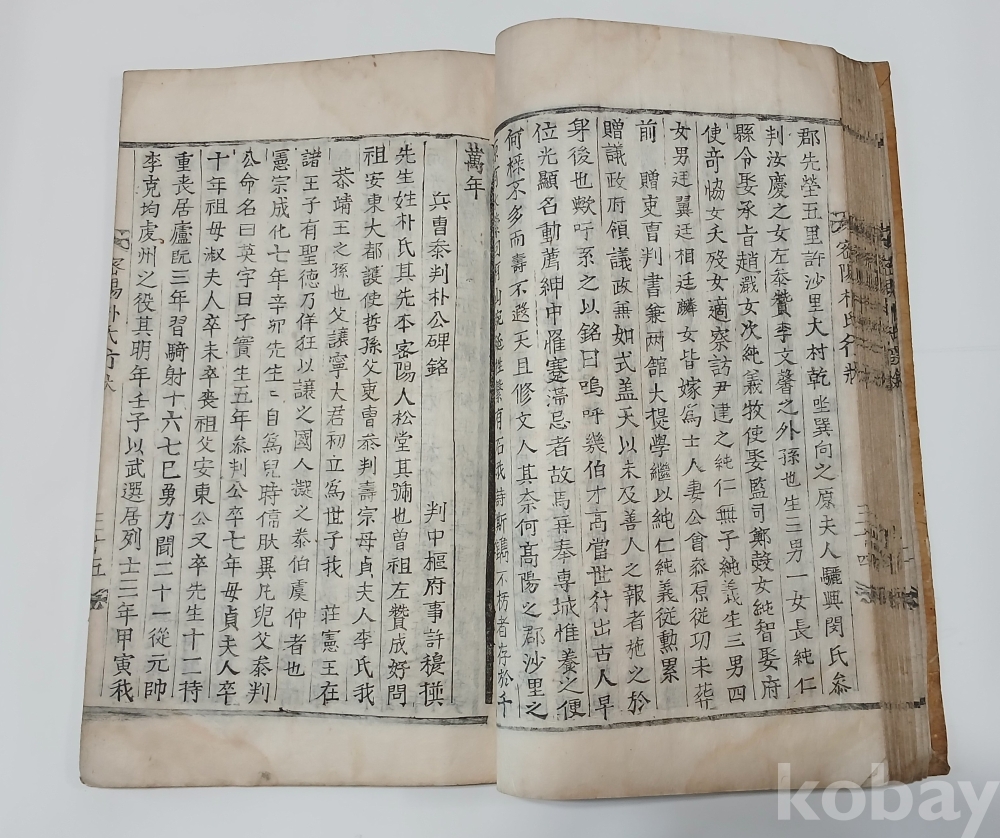 郡先塋丑里許沙里大村乾坐巽向之原夫人驪興閔氏叅
判汝慶之女左叅贊李文馨之外孫也生三男一女長純仁
縣令娶承旨趙戩女次純義牧使娶監司鄭瑴女純智娶府
使竒恊女夭歿女適察訪尹建之純仁無子純義生三男四
女男廷翼廷相廷麟女皆嫁爲士人妻公會叅原從功未葬
前 贈吏曹判書兼兩館大提學繼以純仁純義從勲累
贈議政府領議政兼如式盖天以未及善人之報者施之於
身後也歟吁系之以銘曰嗚呼幾伯才高當世行出古人早
位光顯名動薦紳中罹蹇滯忌者故焉再奉專城惟養之便
何樣不多而壽不遐天且修文人其奈何高陽之郡沙里之
有石我詩斯鐫不朽者存於千
萬年
兵曹叅判朴公碑銘 判中樞府事許穆撰
先生姓朴氏其先本密陽人松堂其號也曽祖左贊成好問
祖安東大都護使哲孫父吏曹叅判壽宗母貞夫人李氏我
恭靖王之孫也父讓寧大君初立爲世子我 莊憲王在
諸王子有聖德乃佯狂以讓之國人凝之泰伯虞仲者也
憲宗成化七年辛卯先生生自爲兒時倜肰異凡兒父叅判
公命名曰英字曰子實生五年叅判公卒七年母貞夫人卒
十年祖母淑夫人卒未卒喪祖父安東公又卒先生十二持
重喪居廬阮三年習騎射十六七已勇力聞二十一從元帥
李克均虔州之役其明年壬子以武選居列士三年甲寅我
密陽朴氏行狀
三十四
三十五
kobay